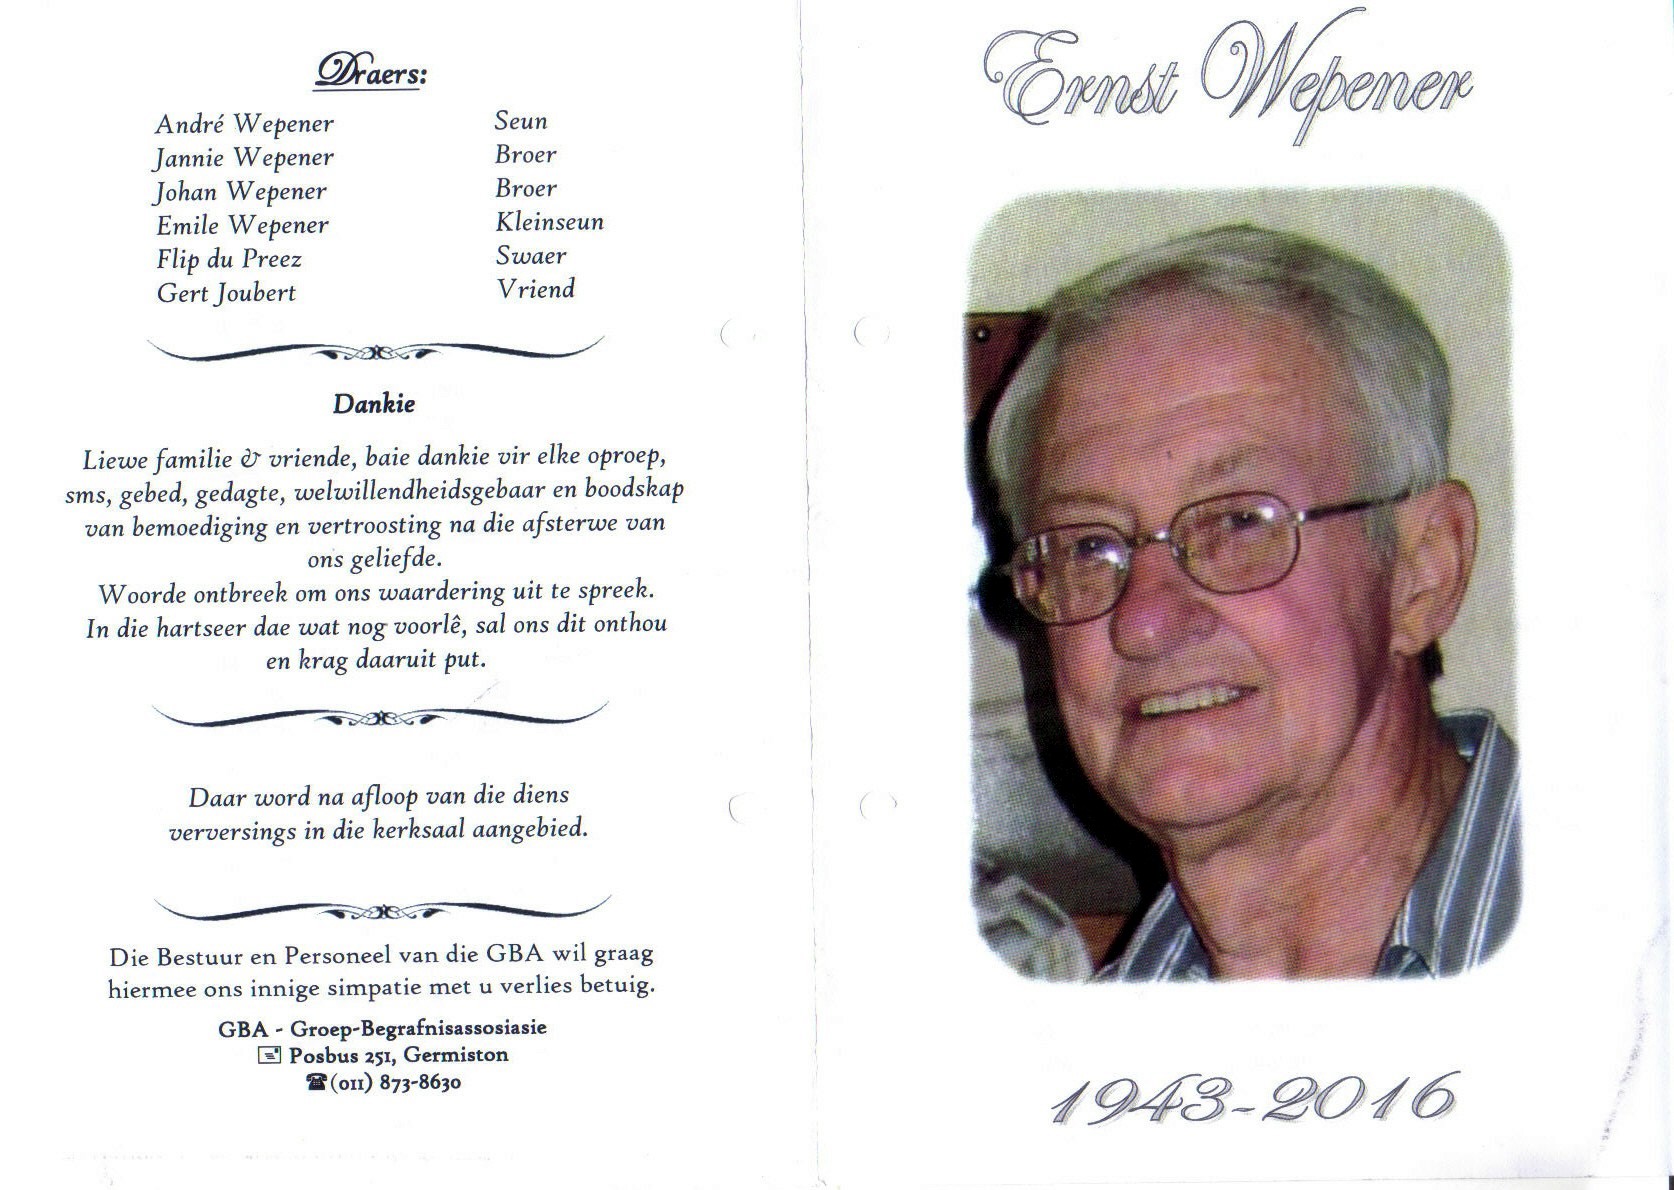 Draers:
André Wepener Seun
Jannie Wepener Broer
Johan Wepener Broer
Emile Wepener Kleinseun
Flip du Preez Swaer
Gert Joubert Vriend
Dankie
Liewe familie & vriende, baie dankie vir elke oproep,
sms, gebed, gedagte, welwillendheidsgebaar en boodskap
van bemoediging en vertroosting na die afsterwe van
ons geliefde.
Woorde ontbreek om ons waardering uit te spreek.
In die hartseer dae wat nog voorlê, sal ons dit onthou
en krag daaruit put.
Daar word na afloop van die diens
verversings in die kerksaal aangebied.
Die Bestuur en Personeel van die GBA wil graag
hiermee ons innige simpatie met u verlies betuig.
GBA - Groep-Begrafnisassosiasie
Posbus 251, Germiston
(011) 873-8630
Ernst Wepener
1943-2016